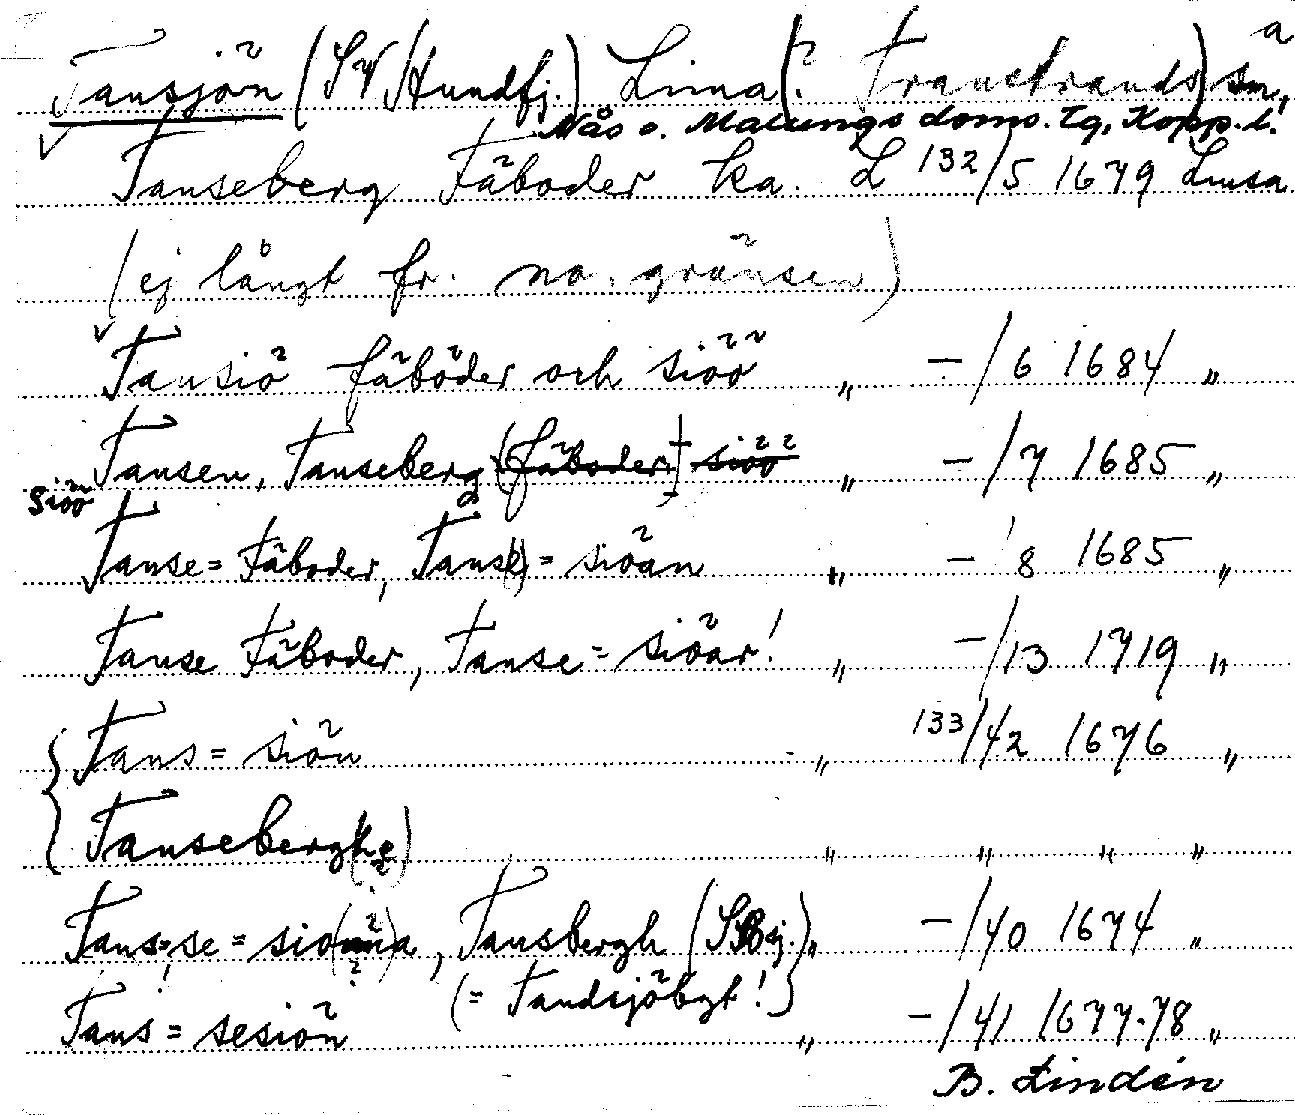 a
Tansjön (SV Hundfj.) Lima (? Transtrands) sn,
Nås o. Malungs doms. tg, Kopp. l.
Tanseberg Fäboder ka. L 132/5 1679 Limsa
(ej långt fr. no. gränsen)
Tansiö fäböder och siöö „ —/6 1684 „
Tansen, Tanseberg (fäboder) siöö „ —/7 1685 „
siöö
Tanse= Fäboder, Tans(e)= siöan „ — 8 1685 „
Tanse Fäboder, Tanse= siöar! „ —/13 1719 „
Tans= siön - „ 133/42 1676 „
Tansebergh „ „ „ „
Tans=se= sio a, Tansbergh „ —/40 1674 „
(= Tandsjöbgt!)
Tans= sesiön „ —/41 1677-78 „
B. Lindén